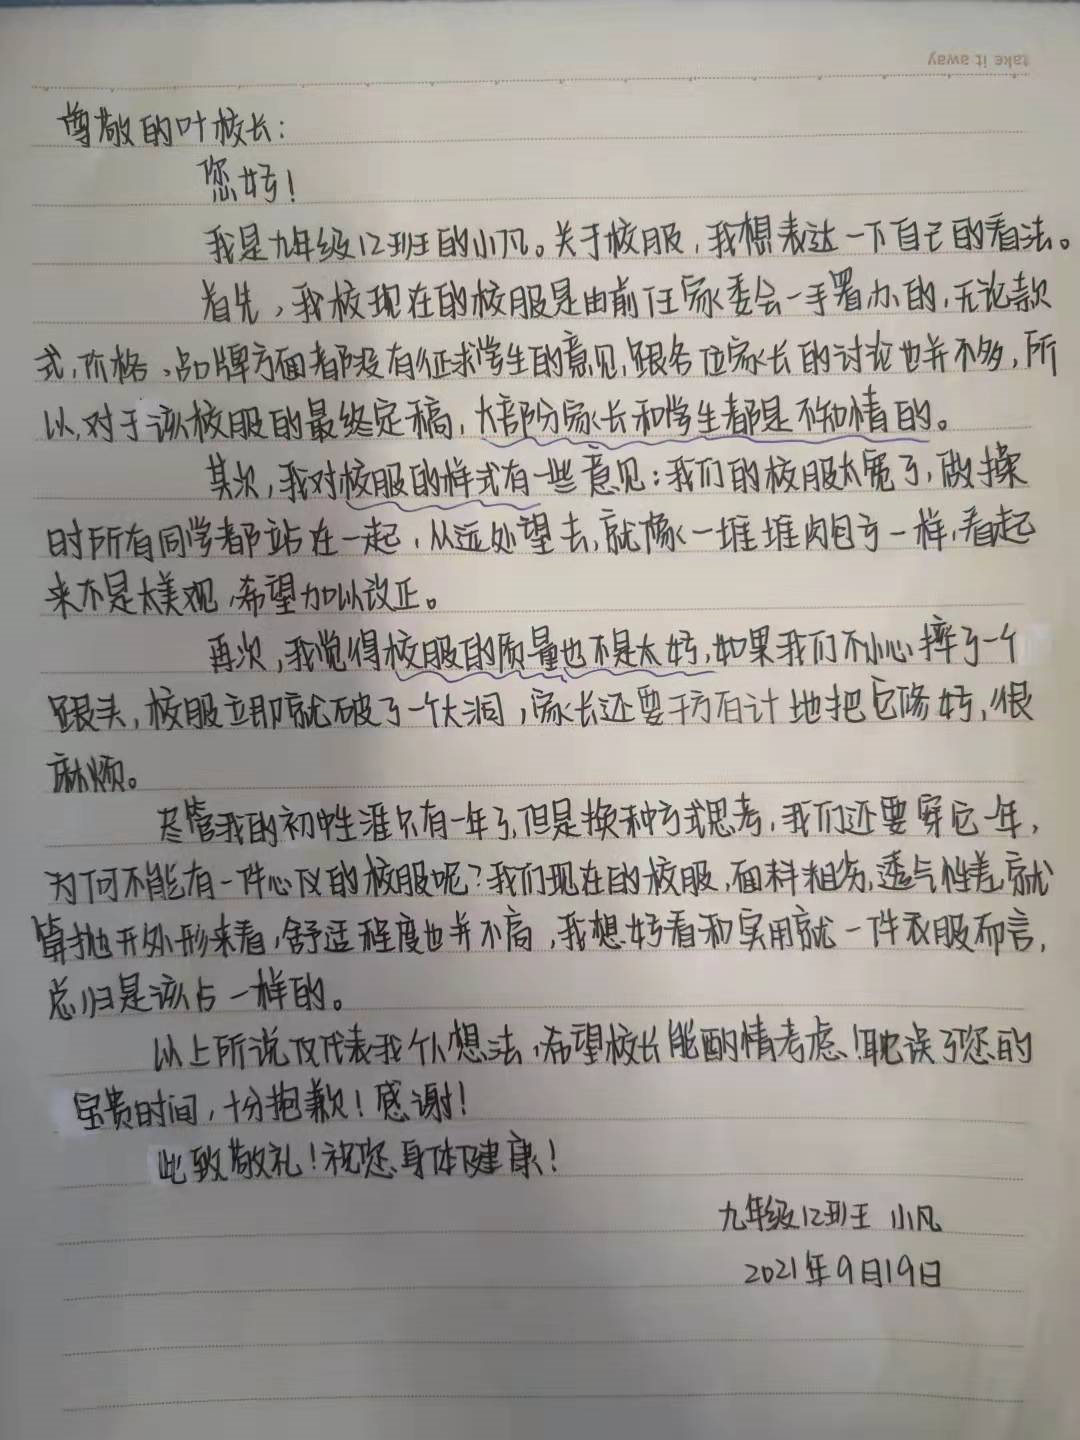 take it away
尊敬的叶校长：
您好！
我是九年级12班的小凡。关于校服，我想表达一下自己的看法。
首先，我校现在的校服是由前任家委会一手署办的，无论款
式，价格、品牌方面都没有征求学生的意见，跟各位家长的讨论也并不多，所
以，对于该校服的最终定稿，大部份家长和学生都是不知情的。
其次，我对校服的样式有一些意见：我们的校服太宽了，做操
时所有同学都站在一起，从远处望去，就像一堆堆肉自亏一样，看起
来不是太美观，希望加以改正。
再次，我觉得校服的质量也不是太好，如果我们不小心摔了一个
跟头，校服立即就破了一个大洞，家长还要千方百计地把它修好，很
麻烦。
尽管我的初中生涯只有一年了，但是换种方式思考，我们还要穿它一年，
为何不能有一件心仪的校服呢？我们现在的校服，面料粗劣，透气性差，就
算抛开外形来看，舒适程度也并不高，我想好看和实用就一件衣服而言，
总归是该占一样的。
以上所说仅代表我个人想法，希望校长能酌情考虑！耽误了您的
宝贵时间，十分抱歉！感谢！
此致敬礼！祝您身体健康！
九年级12班 小凡
2021年9月19日